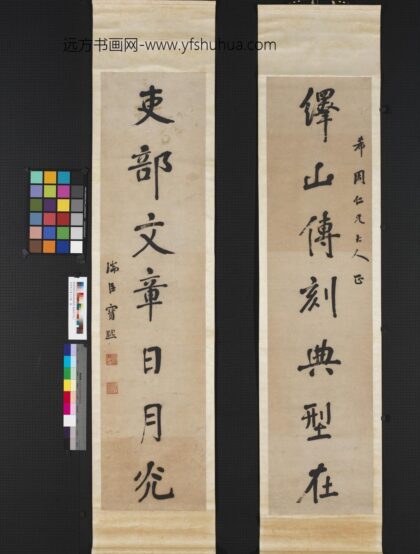 远方书画网-www.yfshuhua.com
希周仁兄大人正
繹山傳刻典型在
吏部文章日月光
瑞臣寶熙